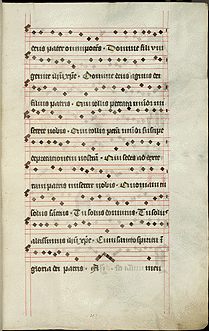 deus pater omnipotens · Domine fili uni
genite ihu xpe · Domine deus agnus dei
filius patris · Qui tollis peccata mundi mi
serere nobis · Qui tollis pcta mundi suscipe
deprecationem nostra · Qui sedes ad dexte
ram patris miserere nobis · Quoniam tu
solus sanctus · Tu solus dominus · Tu solus
altissimus ihu xpe · Cum sancto spiritu i
gloria dei patris · A men